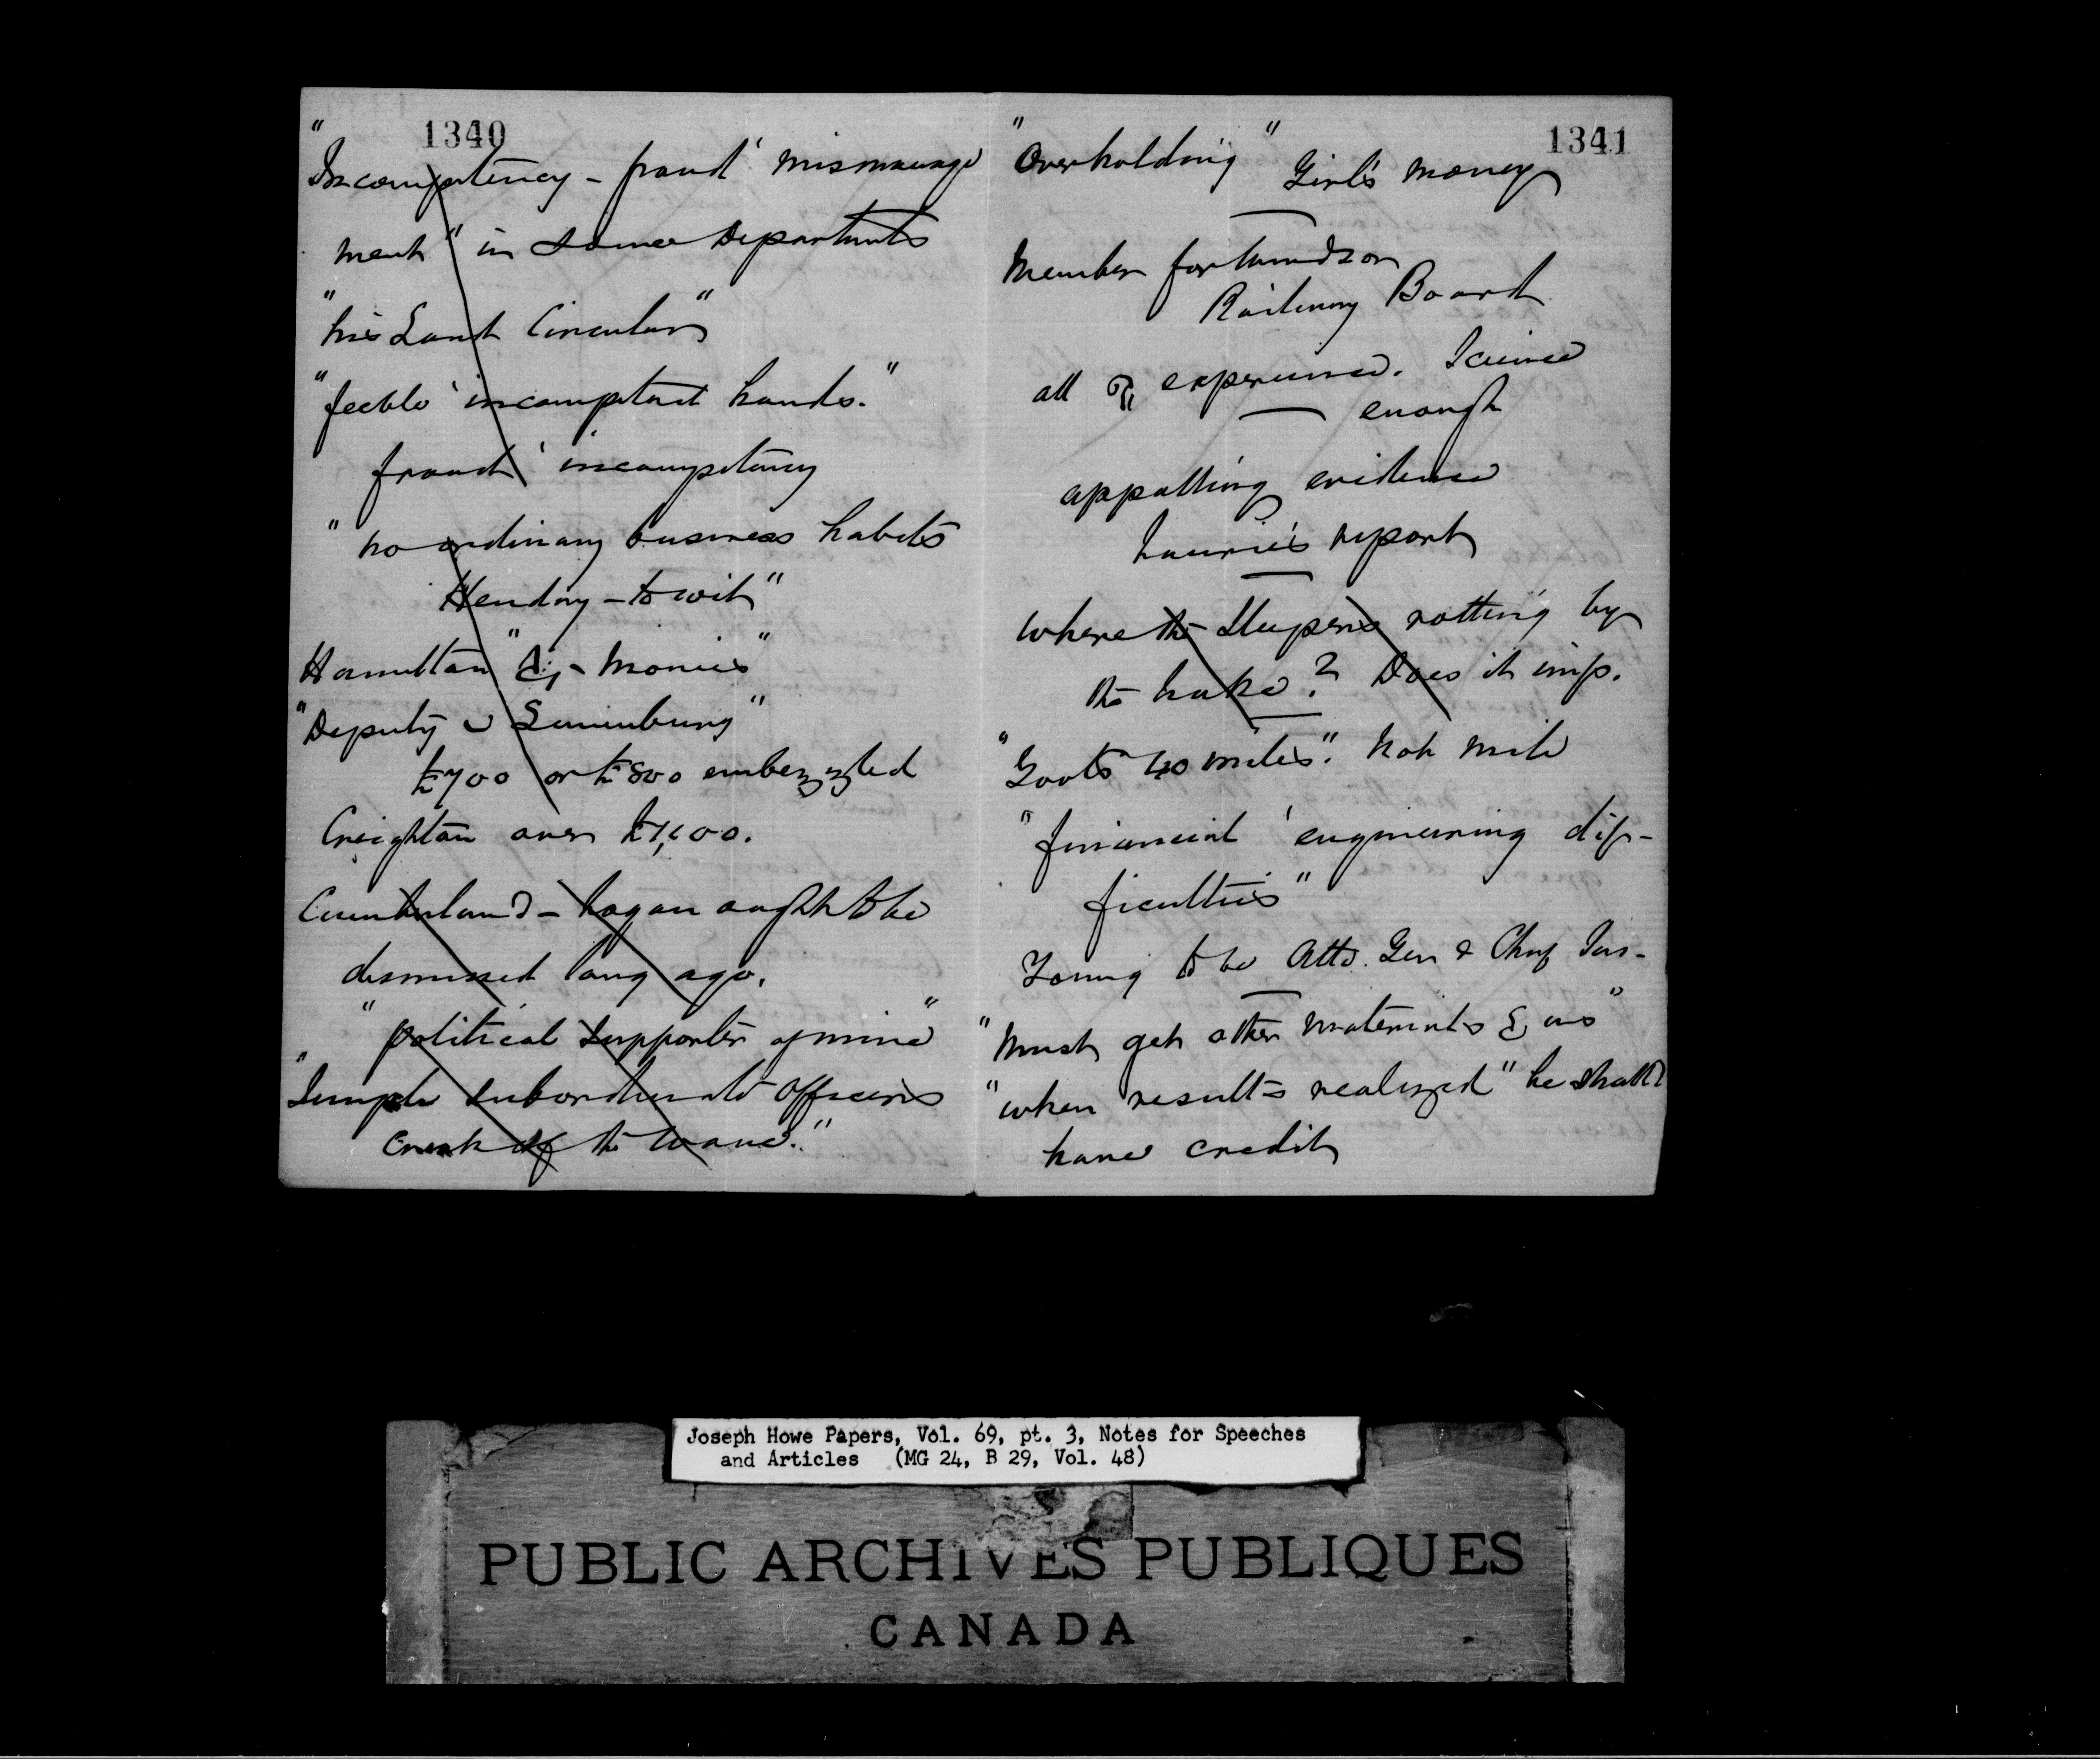 1340
"Incompetency - fraud ' mismanage
ment" in some Departments
"his Land Circular"
"feeble ' incompetent hands."
fraud ' incompetency
"no ordinary business habits
Hendry - to wit"
Hamilton " monies"
"Deputy Lunenburg"
£700 or £800 embezzled
Creighton over
Cumberland - Logan ought to be
dismissed long ago.
"political supporter of mine"
"Simple subordinate officers
of the"
1341
"Overholding" Girl's money
Member for Windsor
Railway Board
all of experience. Science
enough
appalling evidence
Laurie's report
Where the Sleepers rotting by
the Lake? Does it imp.
"Goats 40 miles". Not mile
"financial ' engineering dif-
ficulties"
Young to be Atto. Gen & Chief Jus-
"Must get other materials"
"when results realized" he shall
have credit
Joseph Howe Papers, Vol. 69, pt. 3, Notes for Speeches
and Articles (MG 24, B 29, Vol. 48)
PUBLIC ARCHIVES PUBLIQUES
CANADA